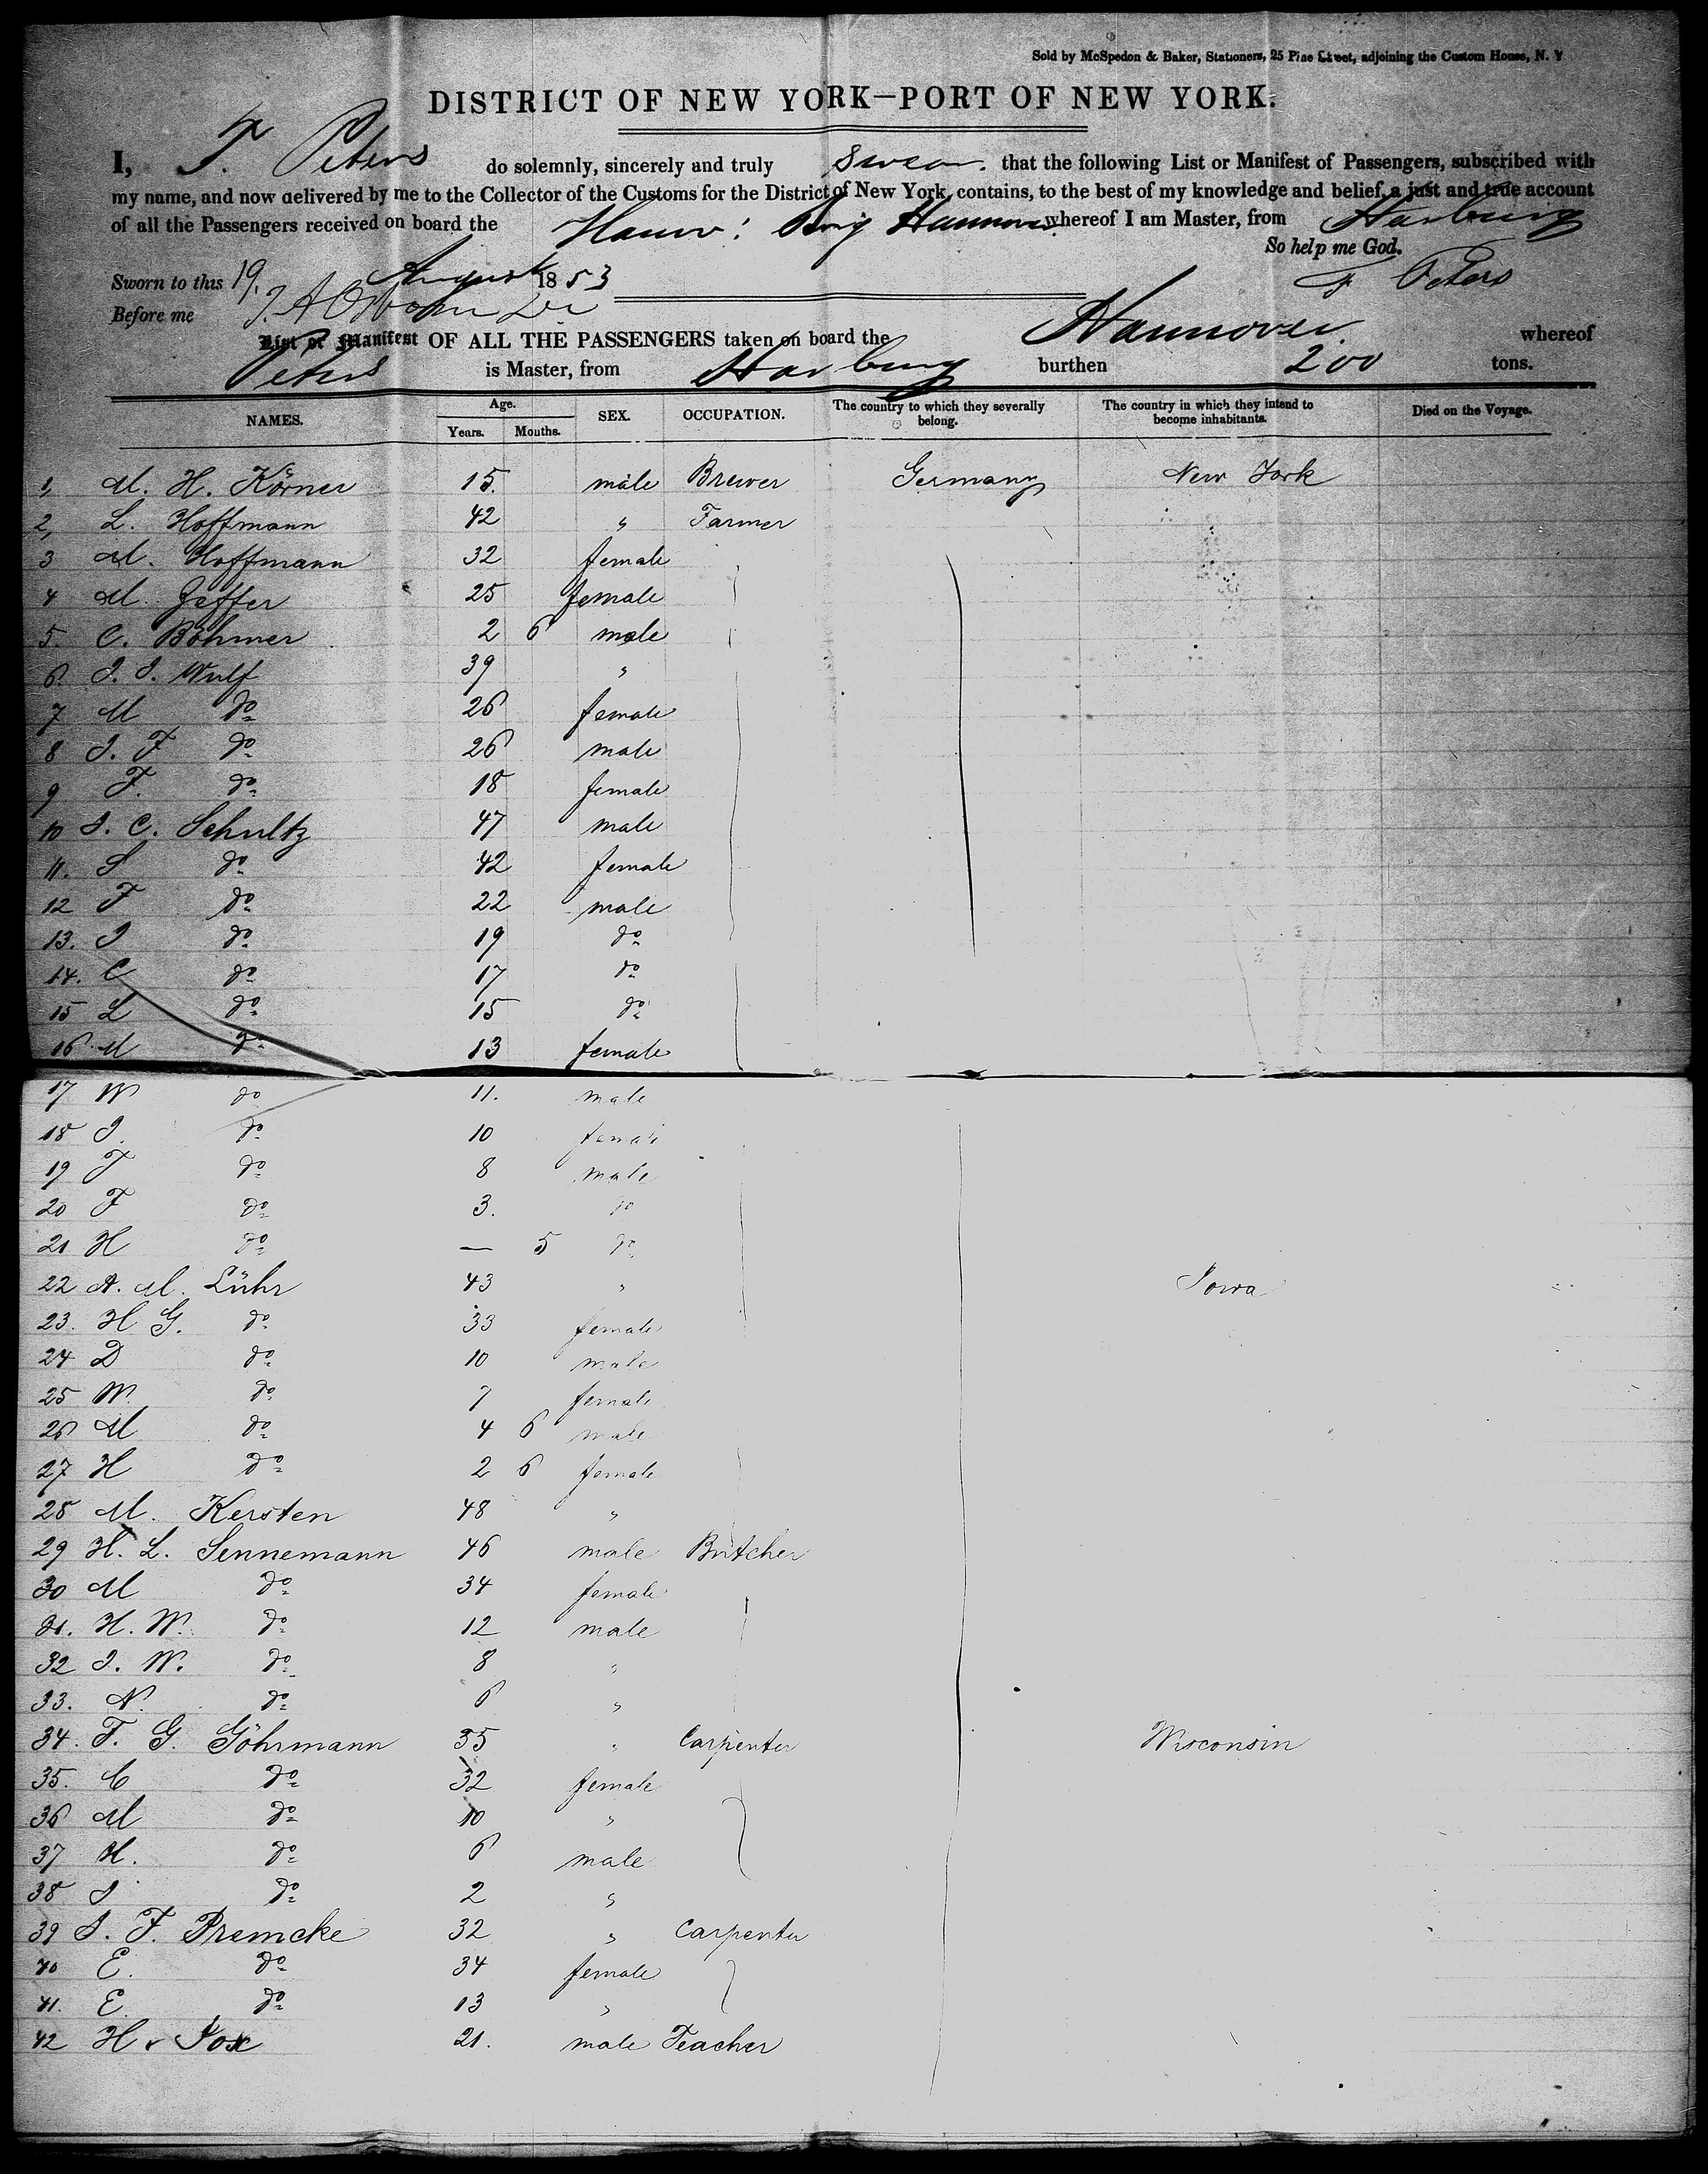 Sold by McSpedon & Baker, Stationers, 25 Pine Street, adjoining the Custom House, N. Y
DISTRICT OF NEW YORK—PORT OF NEW YORK.
I, F. Peters do solemnly, sincerely and truly swear that the following List or Manifest of Passengers, subscribed with
my name, and now delivered by me to the Collector of the Customs for the District of New York, contains, to the best of my knowledge and belief, a just and true account
of all the Passengers received on board the Hanov: Brig Hannover whereof I am Master, from Harburg
So help me God.
Sworn to this 19. August 1853 F Peters
Before me
List or Manifest OF ALL THE PASSENGERS taken on board the Hannover whereof
Peters is Master, from Harburg burthen 200 tons.
NAMES. Age. Years. Months. SEX. OCCUPATION. The country to which they severally belong. The country in which they intend to become inhabitants. Died on the Voyage.
1, M. H. Körner 15. male Brewer Germany New York
2, L. Hoffmann 42 " Farmer
3 M. Hoffmann 32 female
4 M. Jeffer 25 female
5. C. Böhmer 2 6 male
6. J. J. Wulf 39 "
7 M do 26 female
8 J. F do 26 male
9 F. do 18 female
10 J. C. Schultz 47 male
11. S do 42 female
12 F do 22 male
13. J do 19 do
14. C do 17 do
15 L do 15 do
16 M do 13 female
17 W do 11. male
18 J. do 10 female
19 F do 8 male
20 F do 3. do
21 H do — 5 do
22 A. M. Lühr 43 " Iowa
23. H G. do 33 female
24 D do 10 male
25 W. do 7 female
26 M do 4 6 male
27 H do 2 6 female
28 M. Kersten 48 "
29 H. L. Sennemann 46 male Butcher
30 M do 34 female
31. H. W. do 12 male
32 J. W. do 8 "
33. N. do 6 "
34. F. G. Göhrmann 35 " Carpenter Wisconsin
35. C do 32 female
36 M do 10 "
37 H. do 6 male
38 J do 2 "
39 J. F. Premcke 32 " Carpenter
40 E. do 34 female
41. E. do 13 "
42 H. Fox 21. male Teacher